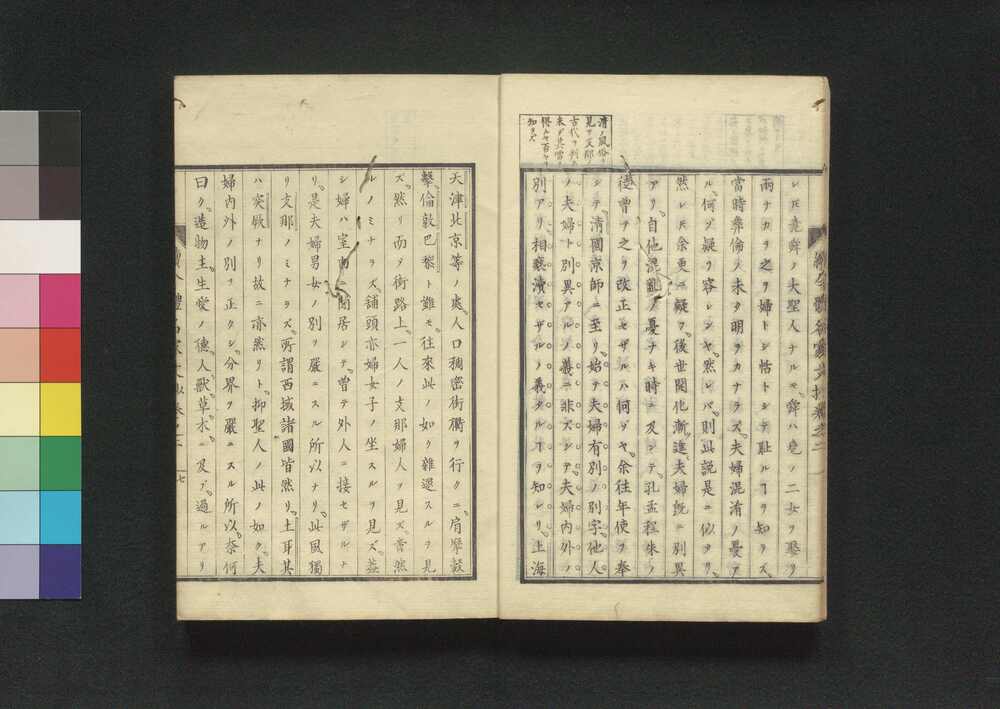 レ𪜈堯舜ノ大聖人ナルモ舜ハ堯ノ二女ヲ娶リ
兩ナカラ之ヲ婦トシ恬トシテ耻ルヿヲ知ラス
當時彜倫ノ未タ明ヲカナラズ夫婦混淆ノ憂ア
ル何ゾ疑ヲ容レンヤ然レバ則此説是ニ似タリ
然レ𪜈余更ニ疑フ後世開化漸進夫婦既ニ別異
アリ自他混亂ノ憂ナキ時ニ及シテ孔孟程朱ノ
徒曾テ之ヲ改正セザルハ何ゾヤ余往年使ヲ奉
シテ清國京師ニ至リ始テ夫婦有別ノ別字他人
ノ夫婦ト別異アルノ義ニ非ズシテ夫婦内外ノ
別アリ相褻瀆セザルノ義タルヿヲ知レリ上海
清ノ風俗ヲ
見テ支那ノ
古代ヲ
知ルベ
天津北京等ノ處人口稠密街衢ヲ行クニ肩摩轂
擊倫敦巴黎ト雖モ往來此ノ如ク雜遝スルヲ見
ズ然リ而ヲ街路上一人ノ支那婦人ヲ見ズ啻然
ルノミナラズ舗頭亦婦女子ノ坐スルヲ見ズ蓋
シ婦ハ室内ニ閑居シテ曾テ外人ニ接セザルナ
リ是夫婦男女ノ別ヲ嚴ニスル所以ナリ此風獨
リ支那ノミナラズ所謂西域諸國皆然リ土耳其
ハ突厥ナリ故ニ亦然リト抑聖人ノ此ノ如ク夫
婦内外ノ別ヲ正クシ分界ヲ嚴ニスル所以奈何
曰ク造物主生愛ノ德人獸草木ニ及デ過ルアリ